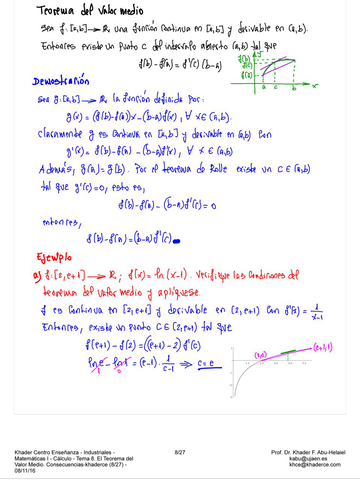 Teorema del Valor medio
Sea f:[a,b]→R una función continua en [a,b] y derivable en (a,b).
Entonces existe un punto c del intervalo abierto (a,b) tal que
f(b)-f(a) = f'(c)(b-a)
y
f(b)
f(c)
f(a)
a c b x
Demostración
Sea g:[a,b]→R la función definida por:
g(x)=(f(b)-f(a))x-(b-a)f(x), ∀ x∈[a,b].
Claramente g es continua en [a,b] y derivable en (a,b) con
g'(x)= f(b)-f(a)-(b-a)f'(x), ∀ x∈(a,b).
Además, g(a)=g(b). Por el teorema de Rolle existe un c∈(a,b)
tal que g'(c)=0, esto es,
f(b)-f(a)-(b-a)f'(c)=0
entonces,
f(b)-f(a)=(b-a)f'(c)
Ejemplo
a) f:[2,e+1]→R; f(x)=ln(x-1). Verifique las condiciones del
teorema del valor medio y aplíquese.
f es continua en [2,e+1] y derivable en (2,e+1) con f'(x)=1/(x-1)
Entonces, existe un punto c∈(2,e+1) tal que
f(e+1)-f(2)=((e+1)-2)f'(c)
ln e - ln 1 = (e-1)·1/(c-1) ⇒ c=e
1 0
(2,0)
(e+1,1)
Khader Centro Enseñanza - Industriales -
Matemáticas I - Cálculo - Tema 8. El Teorema del
Valor Medio. Consecuencias-khaderce (8/27) -
08/11/16
8/27
Prof. Dr. Khader F. Abu-Helaiel
kabu@ujaen.es
khce@khaderce.com